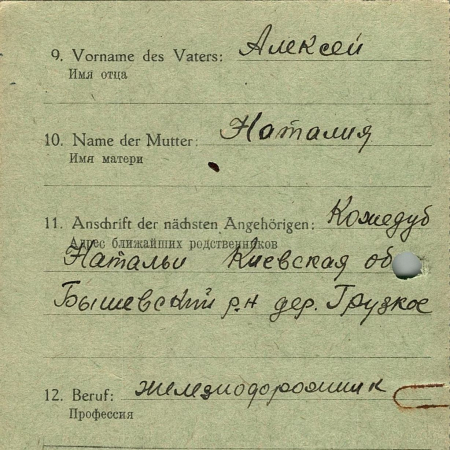 9. Vorname des Vaters: Алексей
Имя отца
10. Name der Mutter: Наталия
Имя матери
11. Anschrift der nächsten Angehörigen: Кожедуб
Адрес ближайших родственников
Натальи Киевская об
Бышевский р-н дер. Грузкое
12. Beruf: железнодорожник
Профессия